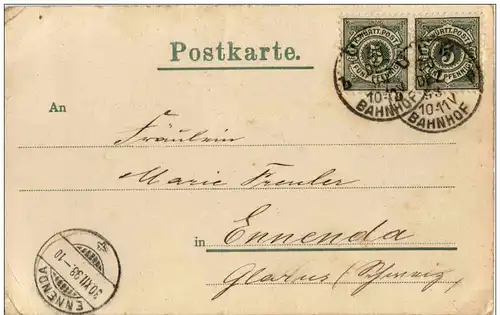 K. WÜRTT. POST
5
FÜNF PFENNIG
5
PFENNIG
Postkarte.
10-11V
BAHNHOF
10-11V
BAHNHOF
An
Fräulein
Marie Freuler
in Ennenda
Glarus / Schweiz
30.VII.98.-10
ENNENDA